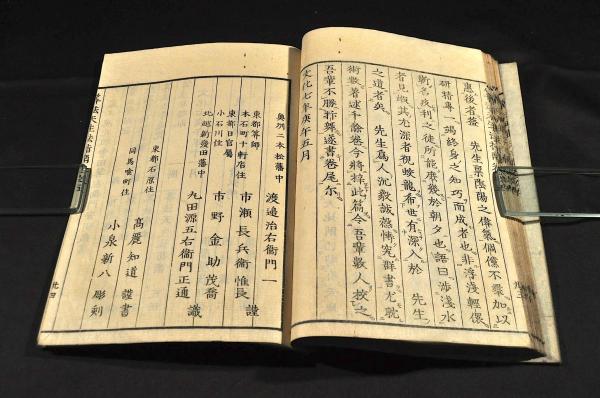 惠後者盖　先生稟陰陽之偉氣倜儻不羣加以
研精專一竭終身之知巧而成者也非浮淺輕儇
名夜利之徒所能庶幾於朝夕也語曰涉淺水
者見蝦其尤深者視蛟龍希世有深入於　先生
之道者矣　先生爲人沉毅誠愨博究群書尤耽
術數著述千餘卷今將梓此篇令吾輩數人挍之
吾輩不勝抃舞遂書卷尾尓
文化七年庚午五月
奥州二本松藩中　渡邉治右衞門一
東都筭師
本石町十軒店住　市瀬長兵衞惟長　謹
東都日官屬
小石川住　市野金助茂喬
北越新發田藩中　丸田源五右衞門正通　識
東都石原住　髙麗知道　謹書
同馬喰町住　小泉新八　彫刻
卅四